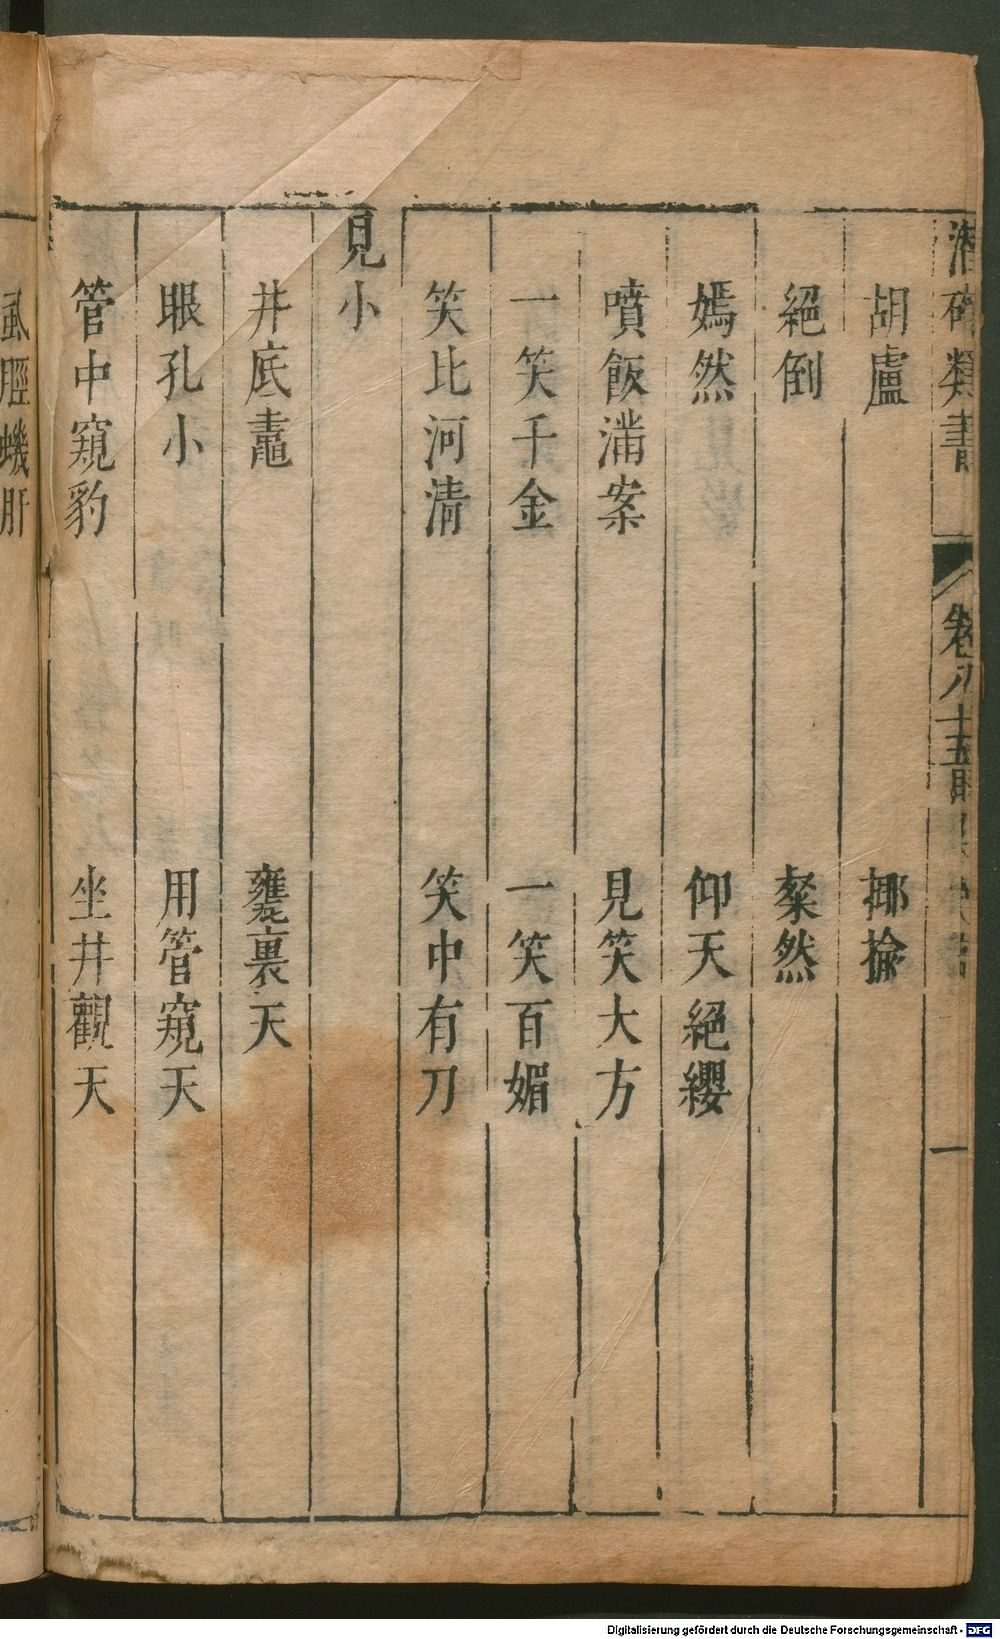 潛確類書
卷八十五
一
胡盧 揶揄
絕倒 粲然
嫣然 仰天絕纓
噴飯滿案 見笑大方
一笑千金 一笑百媚
笑比河清 笑中有刀
見小
井底鼃 甕裏天
眼孔小 用管窺天
管中窺豹 坐井觀天
蝨脛蟣肝
Digitalisierung gefördert durch die Deutsche Forschungsgemeinschaft - DFG